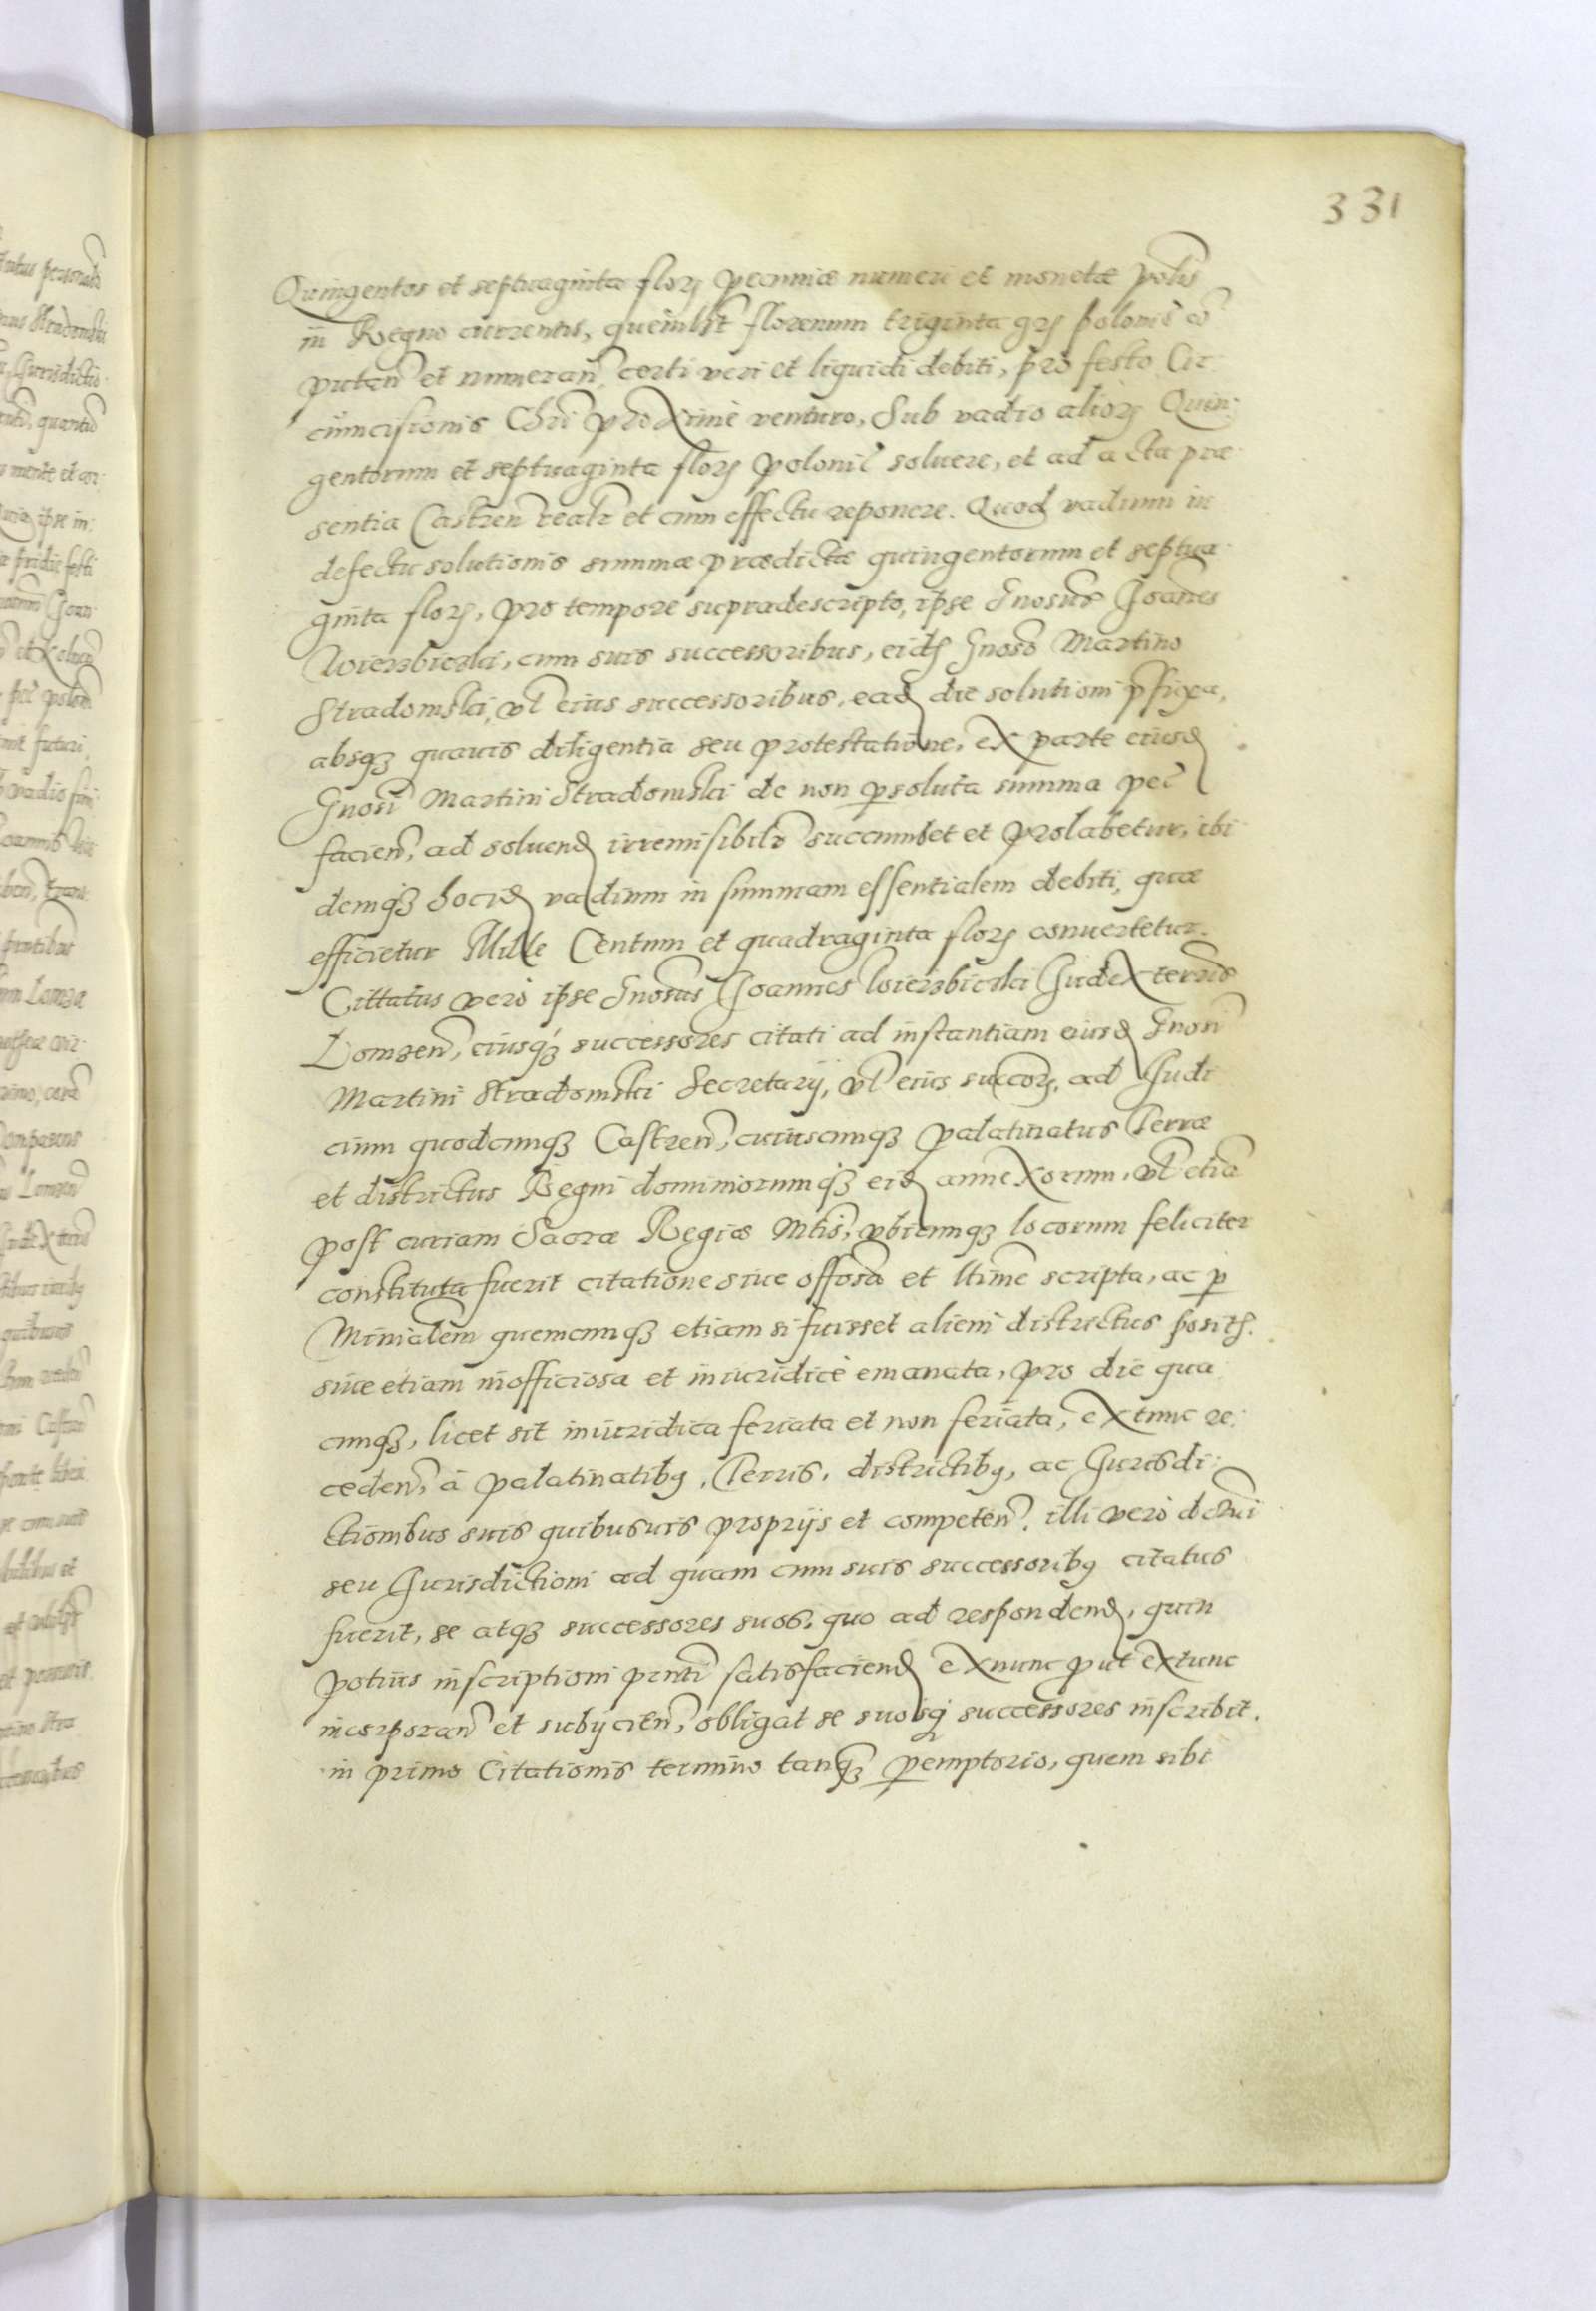 331
Quingentos et septuaginta flor pecuniæ numeri et monetæ polis
in Regno currentis, quemlbt florenum triginta grs polonic co
putan et numeran, certi veri et liquidi debiti, pro festo Cir
cumcisionis Chri proxime venturo, Sub vadio alior Quin:
gentorum et septuaginta flor polonic soluere, et ad acta præ
sentia Castren realr et cum effectu reponere. Quod vadium in
defectu solutionis summæ prædictæ quingentorum et septua
ginta flor, pro tempore supradescripto, ipse Gnosus Joannes
Wierzbiczki, cum suis successoribus, eid Gnoso Martino
Stradomski, vl eius successoribus, ead die solutioni pfixa,
absq quauis diligentia seu protestatione, ex parte eiusd
Gnosi Martini Stradomski de non psoluta summa pec
facien, ad soluend irremisibilr succumbet et prolabetur, ibi
demq hocid vadium in summam essentialem debiti, quæ
efficietur Mille Centum et quadraginta flor conuertetur.
Cittatus vero ipse Gnosus Joannes Wierzbiczki Judex terris
Lomzen, eiusq successores citati ad instantiam eiusd Gnosi
Martini Stradomski Secretarij, vl eius succor, ad Judi
cium quodcumq Castren, cuiuscumq palatinatus Terræ
et districtus Regni dominiorumq eid annexorum, vl etia
post curiam Sacræ Regiæ Mtis, vbicumq locorum feliciter
constituta fuerit citatione siue offosa et ltime scripta, ac p
Minialem quemcumq etiam si fuisset alieni districtus posit.
siue etiam inofficiosa et iniuridicè emanata, pro die qua
cumq, licet sit iniuridica feriata et non feriata, extunc re:
ceden, à palatinatibq, Terris, districtibq, ac Jurisdi:
ctionibus suis quibusuis proprijs et competen. illi verò dctui
seu Jurisdictioni ad quam cum suis successoribq citatus
fuerit, se atq successores suos, quo ad respondend, quin
potius inscriptioni pnti satisfaciend exnunc put extunc
incorporan et subijcien, obligat se suosq successores inscribit.
in primo Citationis termino tanq pemptorio, quem sibi